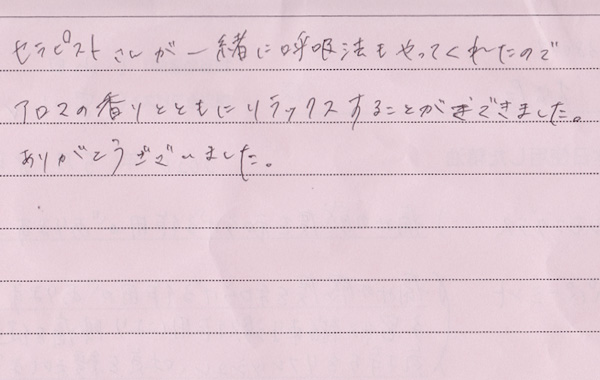 セラピストさんが一緒に呼吸法もやってくれたので
アロマの香りとともにリラックスすることができました。
ありがとうございました。